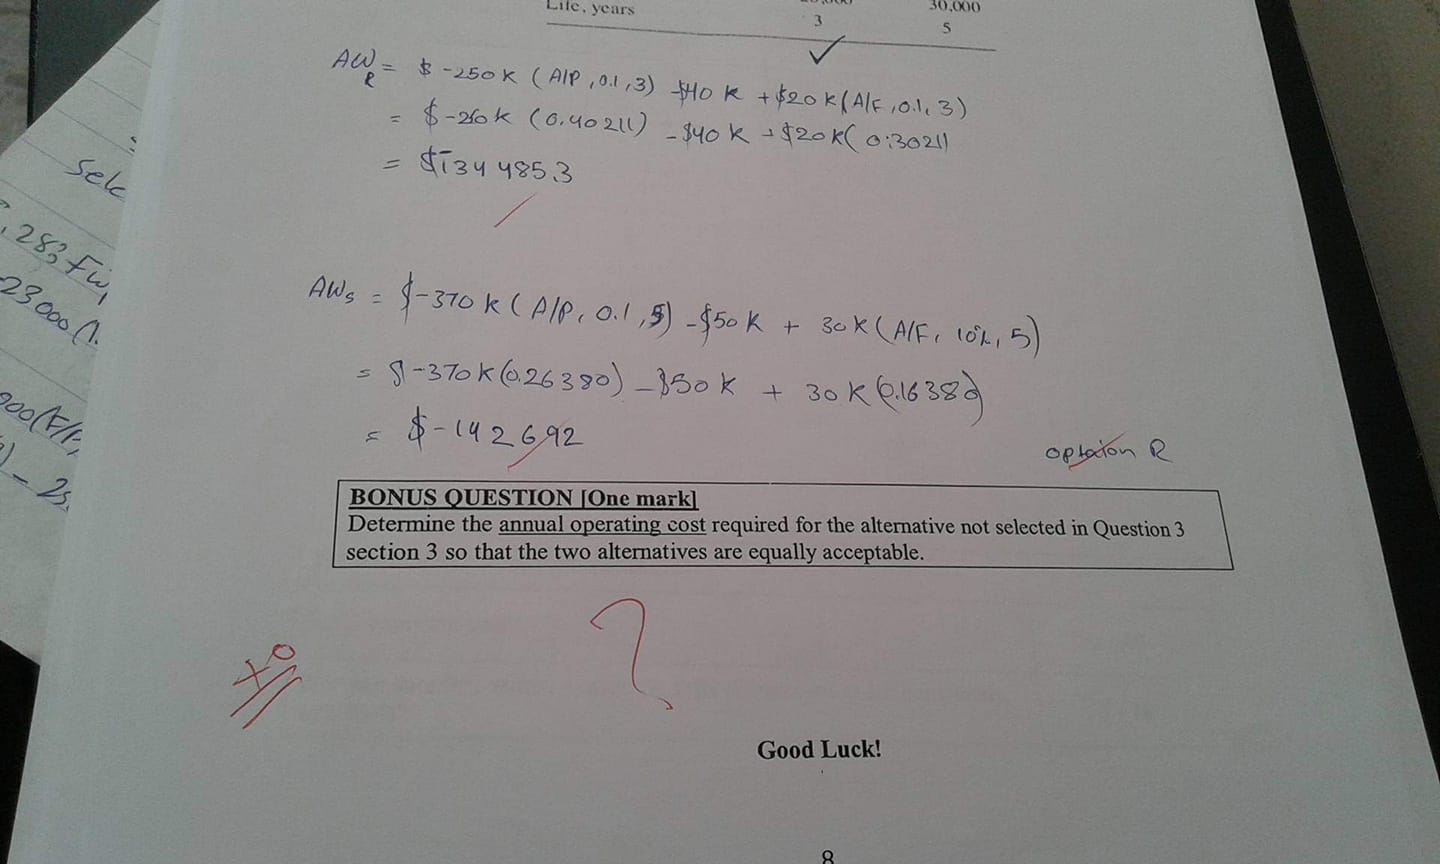 Life, years 3 30,000
5
AW_R = $ -250K (A/P, 0.1, 3) -$40 K + $20 K (A/F, 0.1, 3)
= $-250K (0.40211) - $40 K + $20K( 0.30211
= $-134 485.3
AW_S = $-370 K ( A/P, 0.1, 5) -$50 K + 30K (A/F, 10%, 5)
= $-370K(0.26380) - $50 K + 30 K (0.16380)
= $-142 692
optaion R
BONUS QUESTION [One mark]
Determine the annual operating cost required for the alternative not selected in Question 3
section 3 so that the two alternatives are equally acceptable.
?
+0
Good Luck!
8
Sele
283
23000 (1.
000(A/P,
- 25